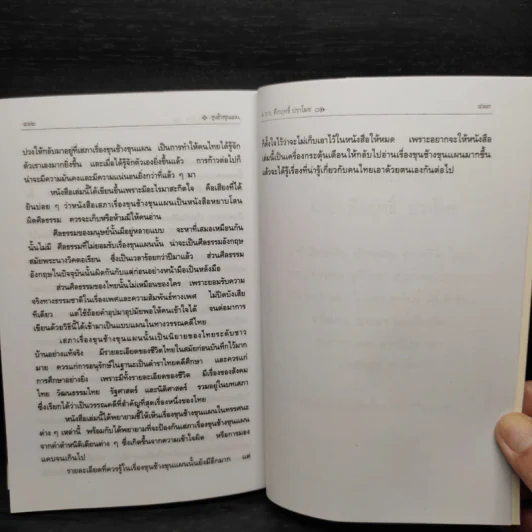 ๔๒๒
ขุนช้างขุนแผน
ปวงให้กลับมาอยู่ที่เสภาเรื่องขุนช้างขุนแผน เป็นการทำให้คนไทยได้รู้จัก
ตัวเราเองมากยิ่งขึ้น และเมื่อได้รู้จักตัวเองยิ่งขึ้นแล้ว การก้าวต่อไปก็
น่าจะมีความมั่นคงและมีความแน่นอนยิ่งกว่าที่แล้ว ๆ มา
หนังสือเล่มนี้ได้เขียนขึ้นเพราะมีอะไรมาสะกิดใจ คือเสียงที่ได้
ยินบ่อย ๆ ว่าหนังสือเสภาเรื่องขุนช้างขุนแผนเป็นหนังสือหยาบโลน
ผิดศีลธรรม ควรจะเก็บหรือห้ามมิให้คนอ่าน
ศีลธรรมของมนุษย์นั้นมีอยู่หลายแบบ จะหาที่เสมอเหมือนกัน
นั้นไม่มี ศีลธรรมที่ไม่ยอมรับเรื่องขุนแผนนั้น น่าจะเป็นศีลธรรมอังกฤษ
สมัยพระนางวิคตอเรียน ซึ่งเป็นเวลาร้อยกว่าปีมาแล้ว ส่วนศีลธรรม
อังกฤษในปัจจุบันนั้นผิดกันกับแต่ก่อนอย่างหน้ามือเป็นหลังมือ
ส่วนศีลธรรมของไทยนั้นไม่เหมือนของใคร เพราะยอมรับความ
จริงทางธรรมชาติในเรื่องเพศและความสัมพันธ์ทางเพศ ไม่ปิดบังเสีย
ทีเดียว แต่ใช้ถ้อยคำอุปมาอุปมัยพอให้คนเข้าใจได้ จนต่อมาการ
เขียนด้วยวิธีนี้ได้เข้ามาเป็นแบบแผนในทางวรรณคดีไทย
เสภาเรื่องขุนช้างขุนแผนนั้นเป็นนิยายของไทยระดับชาว
บ้านอย่างแท้จริง มีรายละเอียดของชีวิตไทยในสมัยก่อนบันทึกไว้มาก
มาย ควรแก่การอนุรักษ์ในฐานะเป็นตำราไทยคดีศึกษา และควรแก่
การศึกษาอย่างยิ่ง เพราะมีทั้งรายละเอียดของชีวิต มีเรื่องของสังคม
ไทย วัฒนธรรมไทย รัฐศาสตร์ และนิติศาสตร์ รวมอยู่ในบทเสภา
ซึ่งเรียกได้ว่าเป็นวรรณคดีที่สำคัญที่สุดเรื่องหนึ่งของไทย
หนังสือเล่มนี้ได้พยายามชี้ให้เห็นเรื่องขุนช้างขุนแผนในทรรศนะ
ต่าง ๆ เหล่านี้ พร้อมกับได้พยายามที่จะป้องกันเสภาเรื่องขุนช้างขุนแผน
จากคำตำหนิติเตียนต่าง ๆ ซึ่งเกิดขึ้นจากความเข้าใจผิด หรือการมอง
แคบจนเกินไป
รายละเอียดที่ควรรู้ในเรื่องขุนช้างขุนแผนนั้นยังมีอีกมาก แต่
คึกฤทธิ์ ปราโมช
๔๒๓
ก็ตั้งใจไว้ว่าจะไม่เก็บเอาไว้ในหนังสือให้หมด เพราะอยากจะให้หนังสือ
เล่มนี้เป็นเครื่องกระตุ้นเตือนให้กลับไปอ่านเรื่องขุนช้างขุนแผนมากขึ้น
แล้วจะได้รู้เรื่องที่น่ารู้เกี่ยวกับคนไทยเอาด้วยตนเองกันต่อไป